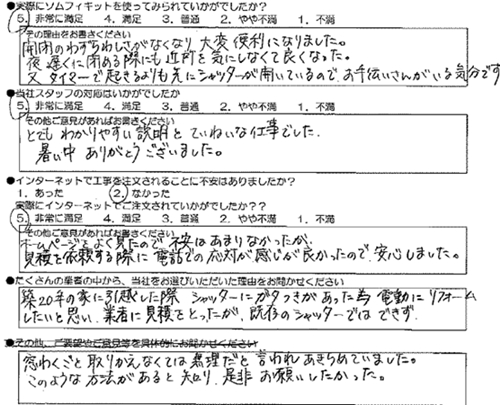 ●実際にソムフィキットを使ってみられていかがでしたか?
5. 非常に満足 4. 満足 3. 普通 2. やや不満 1. 不満
その理由をお書きください
開閉のわずらわしさがなくなり大変便利になりました。
夜遅くに閉める際にも近所を気にしなくて良くなった。
又タイマーで起きるよりも先にシャッターが開いているので、お手伝いさんがいる気分です
●当社スタッフの対応はいかがでしたか
5. 非常に満足 4. 満足 3. 普通 2. やや不満 1. 不満
その他ご意見があればお書きください
とてもわかりやすい説明とていねいな仕事でした。
暑い中ありがとうございました。
●インターネットで工事を注文されることに不安はありましたか?
1. あった 2. なかった
実際にインターネットでご注文されていかがでしたか??
5. 非常に満足 4. 満足 3. 普通 2. やや不満 1. 不満
その他ご意見があればお書きください
ホームページをよく見たので不安はあまりなかったが、
見積を依頼する際に電話での応対が感じが良かったので安心しました。
●たくさんの業者の中から、当社をお選びいただいた理由をお聞かせください
築20年の家に引越した際 シャッターにガタつきがあった為電動にリフォーム
したいと思い、業者に見積をとったが、既存のシャッターではできず、
●その他、ご要望やご意見等を具体的にお聞かせください
窓わくごと取りかえなくては無理だと言われあきらめていました。
このような方法があると知り、是非お願いしたかった。